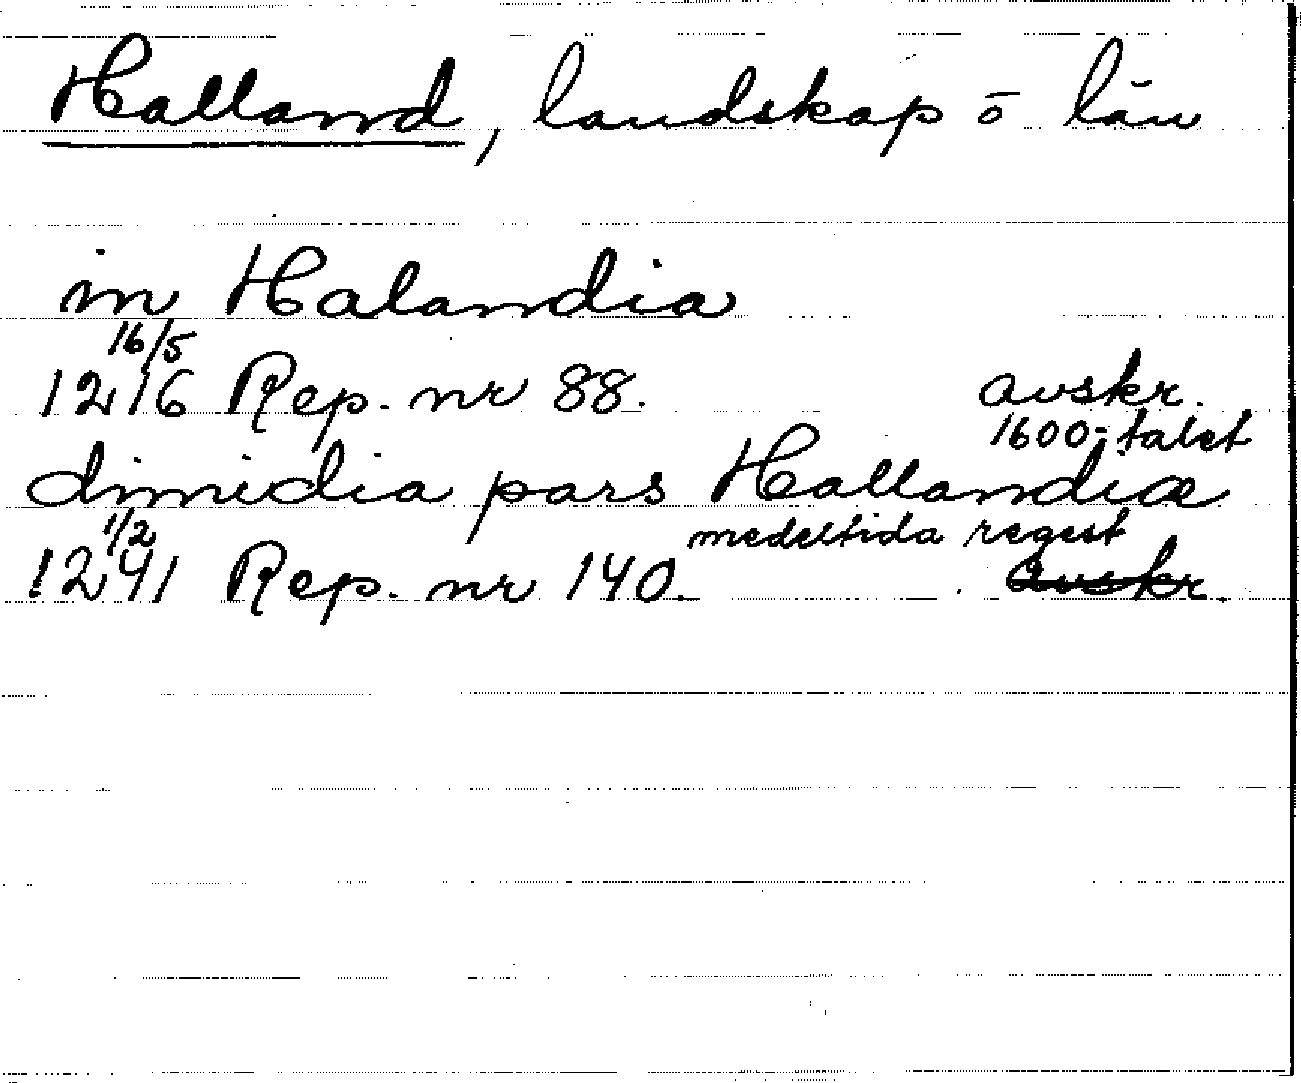 Halland, landskap o län
in Halandia
16/5
1216 Rep. nr 88. avskr.
1600-talet
dimidia pars Hallandiæ
1/2 medeltida regest
1241 Rep. nr 140. avskr.